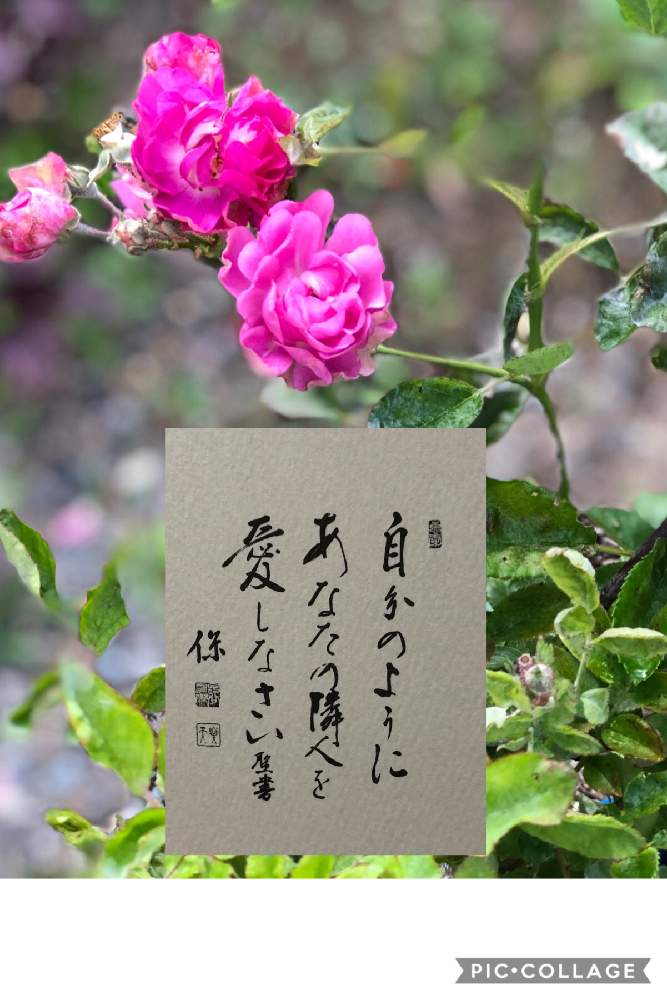 自分のように
あなたの隣人を
愛しなさい 聖書
保
PIC•COLLAGE